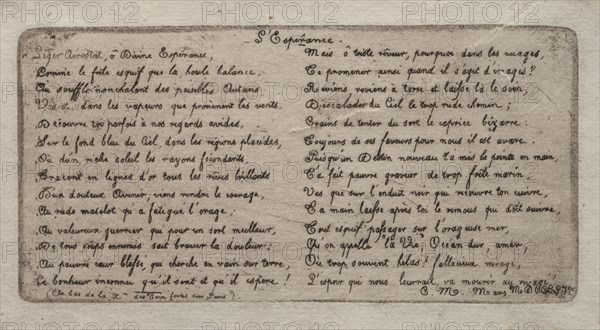 L'Espérance.
Léger Aérostat, ô Divine Espérance,
Comme le frêle esquif que la houle balance,
Au souffle nonchalant des paisibles Autans
dans les vapeurs que promènent les vents.
Découvre toi parfois à nos regards avides,
Sur le fond bleu du Ciel, dans les régions placides,
Où d'un riche soleil les rayons fécondants,
Tracent en lignes d'or tous les rêves brillants
D'un douteux Avenir, viens rendre le courage,
Au rude matelot qu'a fatigué l'orage,
Au valeureux guerrier qui pour un sort meilleur,
De tous temps ennemis sait braver la douleur;
Au pauvre cœur blessé, qui cherche en vain sur terre,
Le bonheur inconnu qu'il sent et qu'il espère!
(Au bas de la des Eaux fortes sur Paris)
Mais ô triste rêveur, pourquoi dans les nuages,
Te promener ainsi quand il s'agit d'images?
Reviens, reviens à terre et laisse là le soin,
D'escalader du Ciel le trop rude chemin;
Crains de tenter du sort le caprice bizarre.
Toujours de ses faveurs pour nous il est avare.
Puisqu'un Destin nouveau t'a mis la pointe en main,
T'a fait pauvre graveur de trop frêle marin,
Vas que sur l'enduit noir qui recouvre ton cuivre,
Ta main laisse après toi le remous qui doit suivre,
Tout esquif passager sur l'orageuse mer,
Qu'on appelle la Vie, Océan dur, amer,
Où trop souvent hélas! fallacieux mirage,
L'espoir qui nous leurrait va mourir au rivage!
C. M.